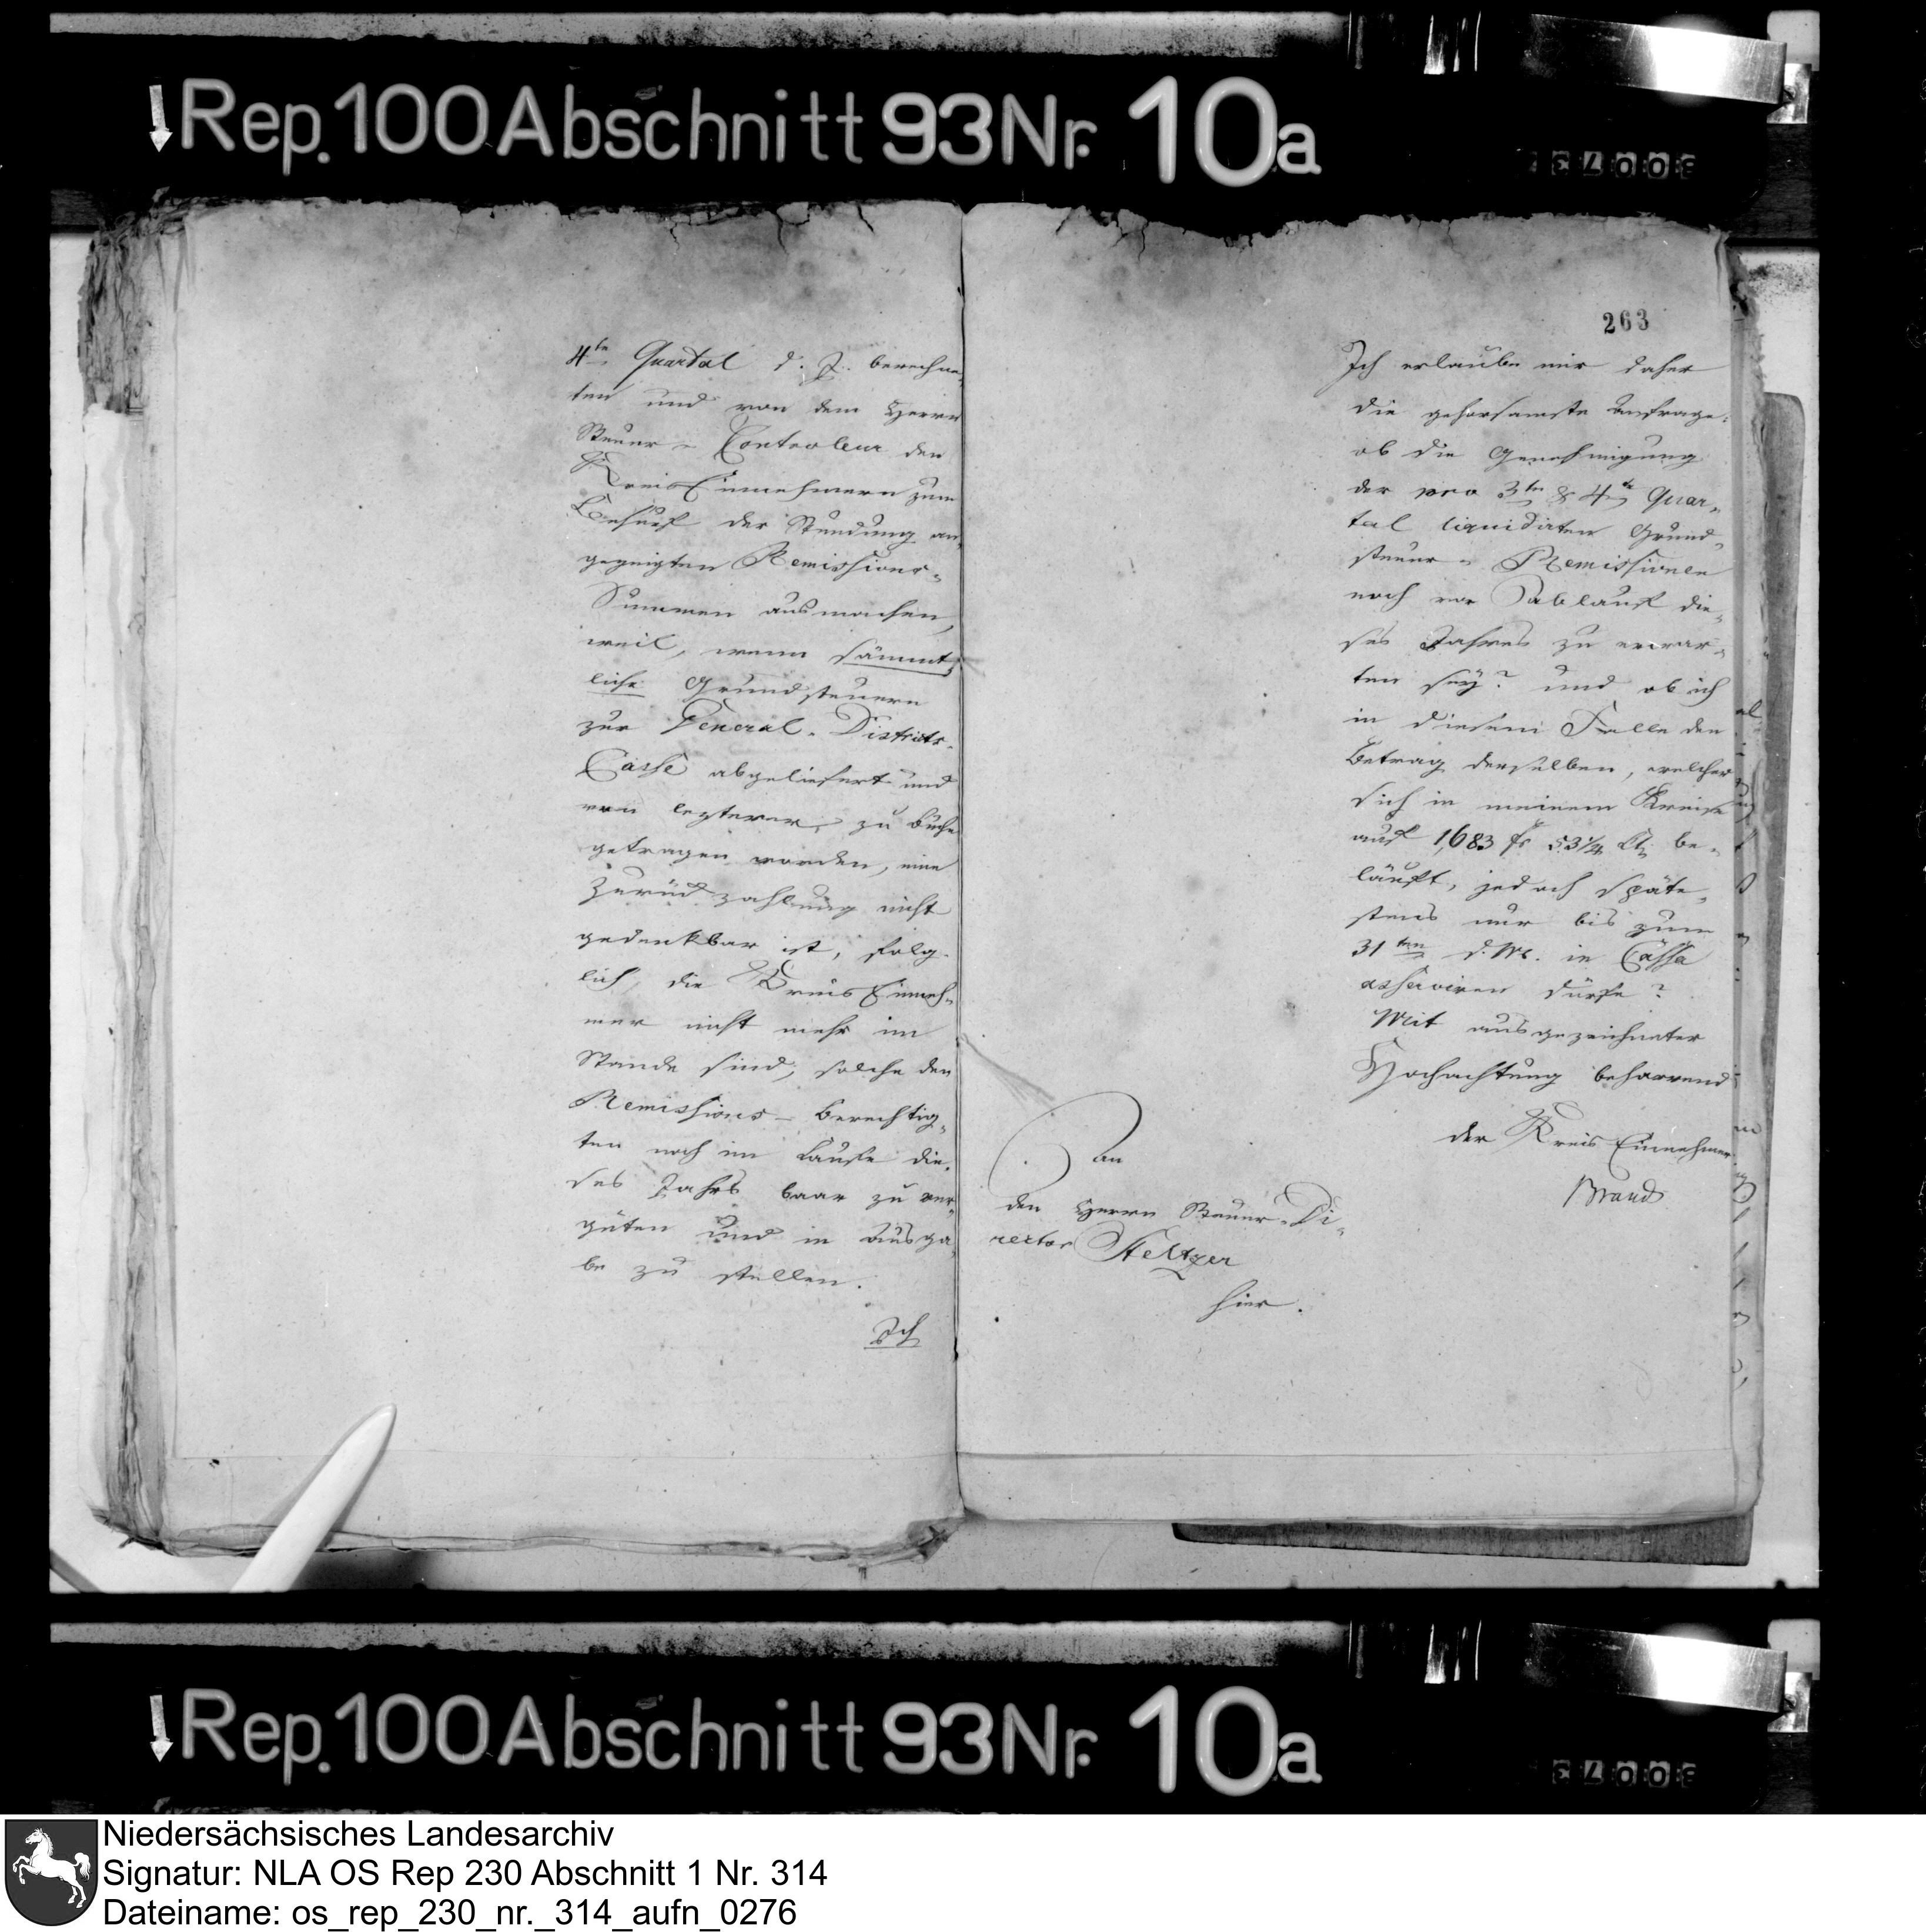 Rep. 100 Abschnitt 93 Nr. 10a
30073
4te Quartal d. J. berechne-
ten und von dem Herrn
Steuer-Controleur den
Kreis Einnehmern zum
Behuf der Stundung an-
gezeigten Remissions-
Summen ausmachen,
weil, wenn sämmt-
liche Grundsteuern
zur General-Districts-
Casse abgeliefert und
von lezterer zu Buche
getragen worden, eine
Zurückzahlung nicht
gedenkbar ist, folg-
lich, die Kreis Einneh-
mer nicht mehr im
Stande sind, solche den
Remissions-Berechtig-
ten noch im Laufe die-
ses Jahrs baar zu ver-
güten und in Ausga-
be zu stellen.
Ich
263
Ich erlaube mir daher
die gehorsamste Anfrage:
ob die Genehmigung
der pro 3te & 4te Quar-
tal liquidirten Grund-
steuer-Remissionen
noch vor Ablauf die-
ses Jahres zu erwar-
ten sey? und ob ich
in diesem Falle den
Betrag derselben, welcher
sich in meinem Kreise
auf 1,683 fr 53 1/4 Ct. be-
läuft, jedoch späte-
stens nur bis zum
31ten d. M. in Cassa
asserviren dürfe?
Mit ausgezeichneter
Hochachtung beharrend
der Kreis Einnehmer
Brand
An
den Herrn Steuer-Di-
rector Steltzer
hier.
Rep. 100 Abschnitt 93 Nr. 10a
30073
Niedersächsisches Landesarchiv
Signatur: NLA OS Rep 230 Abschnitt 1 Nr. 314
Dateiname: os_rep_230_nr._314_aufn_0276